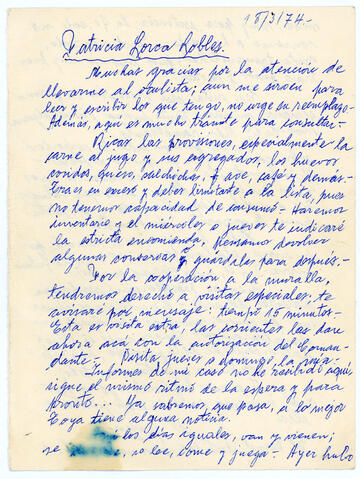 18/3/74.-
Patricia Lorca Robles.
Muchas gracias por la atención de
llevarme al oculista; aun me sirven para
leer y escribir los que tengo, no urge su reemplazo
Además, aquí es mucho trámite para consultar.-
Ricas las provisiones, especialmente la
carne al jugo y sus agregados, los huevos
cocidos, queso, salchichas, ave, café y demás.-
Traes en exceso y debes limitarte a la lista, pues
no tenemos capacidad de consumo.- Haremos
inventario y el miércoles o jueves te indicaré
la estricta encomienda, pensamos devolver
algunas conservas guárdalas para después.-
Por la cooperación a la muralla,
tendremos derecho a visitas especiales, te
avisaré por mensaje: tiempo 15 minutos.-
Esta es visita extra, las corrientes las dan
ahora acá con la autorización del Coman-
dante.- Punta, jueves o domingo, la
Informes de mi caso no he recibido aquí,
sigue el mismo ritmo de la espera y para
pronto... Ya sabremos que pasa, a lo mejor
Coya tiene alguna noticia.
los días iguales, van y vienen;
se lee, come y juega.- Ayer hubo